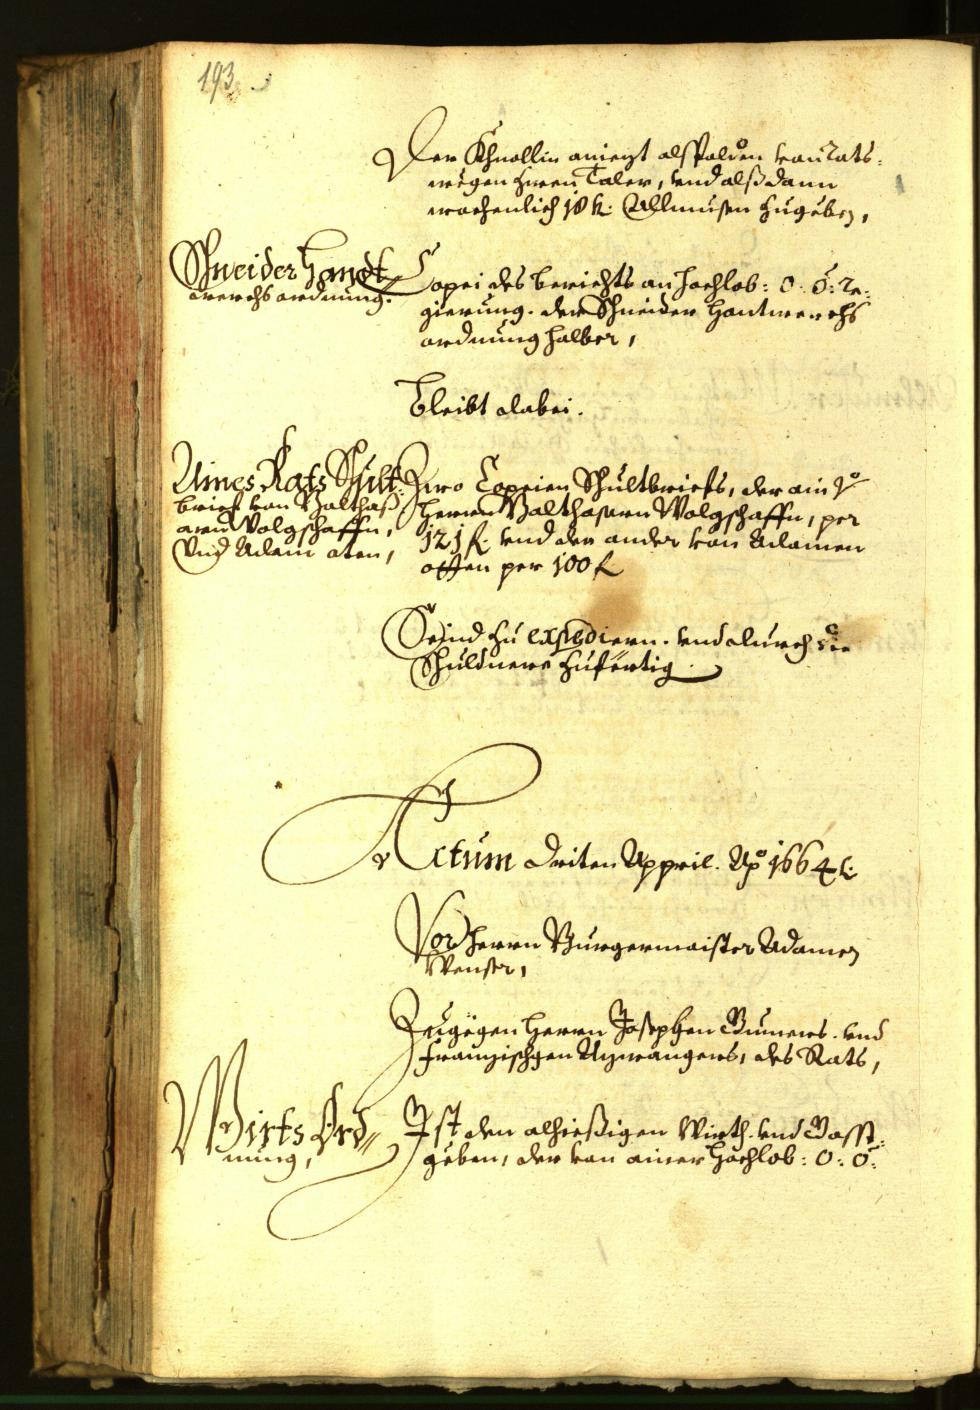 193
Der Khnollin aniezt alspalden von Rats-
wegen zween Taler, und alßdann
wochenlich 18 k: Allmusen zugeben,
Schneider Handt-
werchs ordnung.
Copei des berichts an hochlob: O: Ö: Re-
gierung. der Schneider Hantwerchs
ordnung halber,
Bleibt dabei.
Aines Rats Schult-
brief von Balthaß-
arn Wolgschaffn,
Und Adam oten,
Zwo Copeien Schultbriefs, der ain
Herrn Balthasarn Wolgschaffn, per
121 f. und der ander von Adamen
otten per 100 f
Seind zu expediern. und durch die
Schuldner zufertig
Actum driten Appril. Ao 1664 t:
Vor Herrn Burgermaister Adamen
Wenser,
Zugegen Herrn Josephen und
Franzischgen des Rats,
Wirts Ord-
nung,
Ist den alhießigen Wirth. und Gasst-
geben, der von ainer Hochlob: O: Ö: